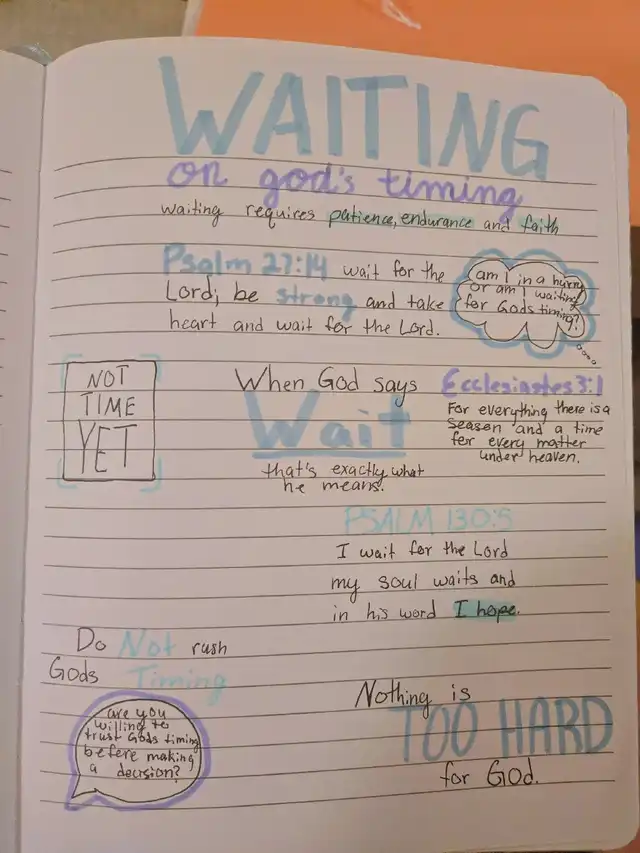 WAITING
on god's timing
waiting requires patience, endurance and faith
Psalm 27:14 wait for the
Lord; be strong and take
heart and wait for the Lord.
am I in a hurry
or am I waiting
for Gods timing?
NOT
TIME
YET
When God says
Wait
that's exactly what
he means.
Ecclesiastes 3:1
For everything there is a
season and a time
for every matter
under heaven.
PSALM 130:5
I wait for the Lord
my soul waits and
in his word I hope.
Do Not rush
Gods Timing
are you
willing to
trust Gods timing
before making
a decision?
Nothing is
TOO HARD
for GOD.